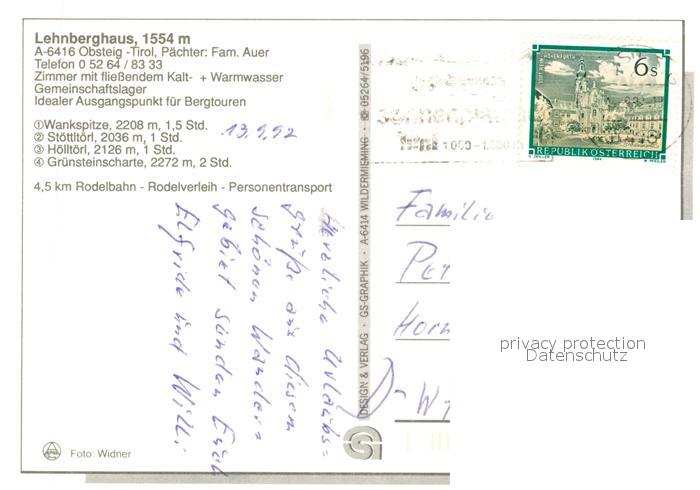 Lehnberghaus, 1554 m
A-6416 Obsteig -Tirol, Pächter: Fam. Auer
Telefon 0 52 64 / 83 33
Zimmer mit fließendem Kalt- + Warmwasser
Gemeinschaftslager
Idealer Ausgangspunkt für Bergtouren
①Wankspitze, 2208 m, 1,5 Std.
② Stöttltörl, 2036 m, 1 Std.
③ Hölltörl, 2126 m, 1 Std.
④ Grünsteinscharte, 2272 m, 2 Std.
13.9.92
4,5 km Rodelbahn - Rodelverleih - Personentransport
Herzliche Urlaubs=
grüße aus diesem
schönen Wander=
gebiet senden Euch
Elfride und Willi
Foto: Widner
DESIGN & VERLAG · GS-GRAPHIK · A-6414 WILDERMIEMING · ☎ 05264/5196
1.000 -
6 s
REPUBLIK ÖSTERREICH
Familie
Pet
Horn
D- W
privacy protection
Datenschutz